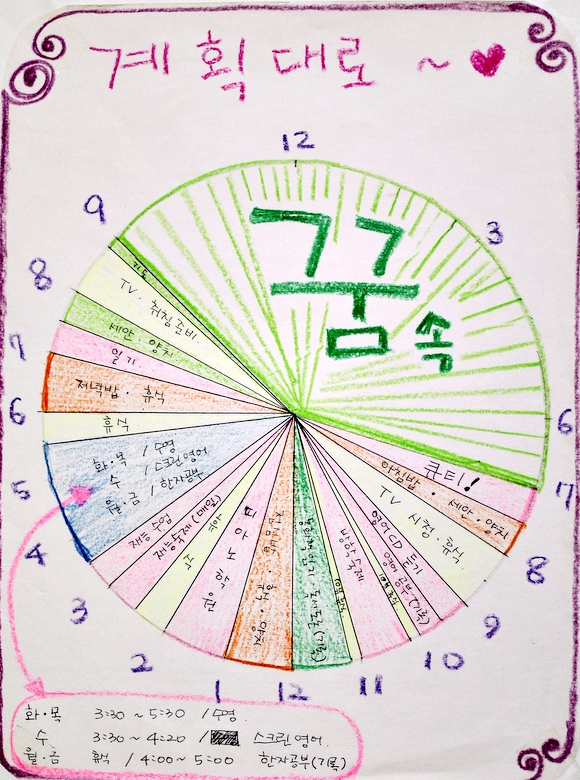 계획대로~♥
12
3
6
7
8
9
10
11
12
1
2
3
4
5
6
7
8
9
꿈속
큐티!
아침밥 · 세안 · 양치
TV 시청 · 휴식
영어CD 듣기
영어공부(기록)
방학숙제
점심밥 · 휴식
피아노
음악
휴식
재능숙제(매일)
재능수업
화·목 / 수영
수 / 스크린영어
월·금 / 한자공부
휴식
저녁밥 · 휴식
일기
세안 · 양치
TV · 취침준비
기도
화·목 3:30 ~ 5:30 / 수영
수 3:30 ~ 4:20 / 스크린영어
월·금 휴식 / 4:00 ~ 5:00 한자공부(기록)